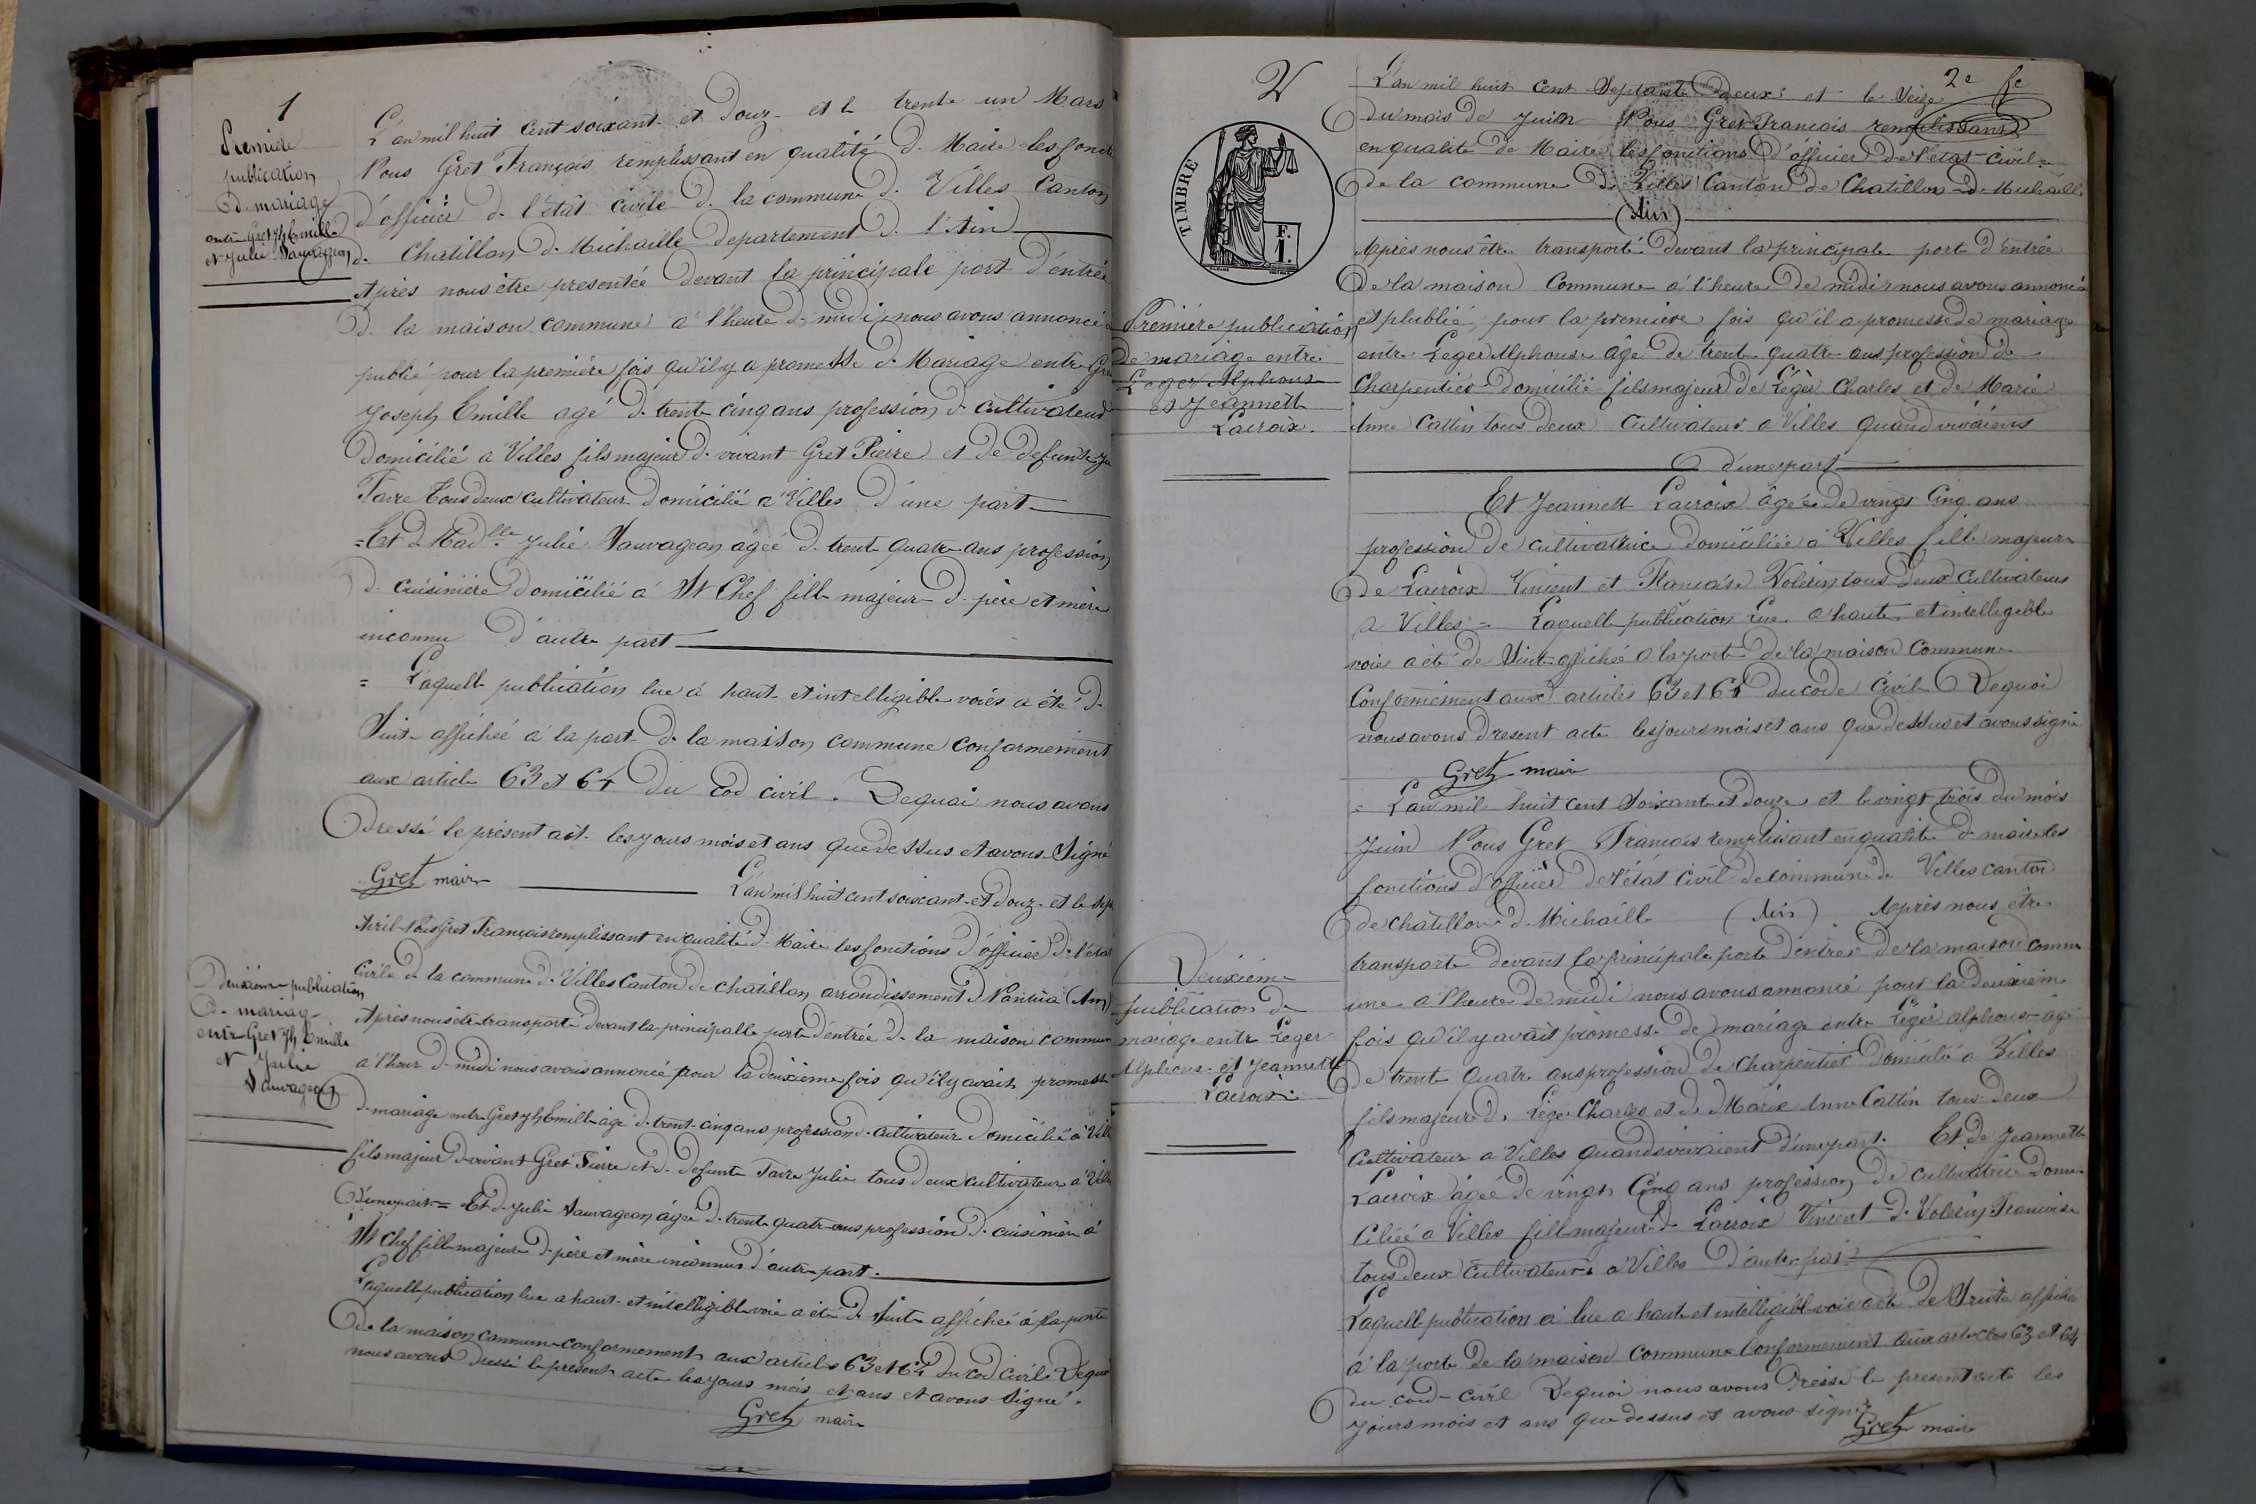 1
Premiére
publication
de mariage
entre Gret Jh Emille
et Julie Sauvageon
L'an mil huit cent soixant et douz et l trente un Mars
Nous Gret François remplissant en qualité d. Maire les fonct
d'officier d. l'état civile d. la commune d. Villes Canton
d. Chatillon d. Michaille departement d. l'Ain
Aprés nous être presentée devant la principale port d'entrée
d. la maison commune a l'heure d. midi, nous avons annoncé
publié pour la première fois qu'il y a promesse d. Mariage entre Gre
Joseph Emille agé d. trent cinq ans profession d. cultivateur
domicilié à Villes fils majeur d. vivant Gret Pierre et de defunte Ju
Favre tous deux cultivateur domicilié a Villes d'une part
= Et d Madlle Julie Sauvageon ageé d. trent quatre ans profession
d. cuisiniére domicilié á St Chef fille majeur d. pére et mére
inconnu d'autre part
= Laquell publication lue á haut et intelligible voies a été d.
Suit affichée á la port d. la maison commune conformement
aux article 63 et 64 du cod civil. Dequoi nous avons
dressé le présent act. les jours mois et ans que dessus et avons Signé
Gret mair
L'an mil huit cent soixant et douz et le sept
Avril Nous Gret François remplissant en qualité d. Maire les fonctions d'officier d. l'état
civile d. la commune d. Villes Canton de chatillon arrondissement d. Nantua (Ain)
Deuxième publication
d. mariag
entre Gret Jh Emille
et Julie
Sauvageon
Aprés nous être transporté devant la principalle port d'entrée d. la maison commun
a l'heur d. midi nous avons annoncé pour la deuxième fois qu'il y avait promess
d. mariage entre Gret Jh Emill agé d. trent cinq ans profession d. cultivateur domicilié a Vill
fils majeur d. vivant Gret Pierre et d. defunte Favre Julie tous deux cultivateur a Vill
d'une part = Et d. Julie Sauvageon ágée d. trente quatr ans profession d. cuisiniére á
St Chef fill majeur d. pére et mére inconnus d'autre part.
Laquell publication lue a haut et intelligible voie a été d. suite affichée á la porte
de la maison commune conformement aux articles 63 et 64 du cod civil. Dequoi
nous avons dressé le present acte les jours mois et ans et avons signé.
Gret mair
2
2e fe
TIMBRE
F.
1.
L'an mil huit cent Septante deux et le Seize
du mois de Juin Nous Gret Francois remplissant
en qualité de Maire les fonctions d'officier de l'état civil
de la commune de Villes Canton de Chatillon de Michaille
(Ain)
Aprés nous être transporté devant la principale port d'entrée
de la maison Commune á l'heure de midi nous avons annoncé
Première publication
de mariage entre
Leger Alphons
et Jeannett
Lacroix.
et plublié, pour la premiere fois qu'il a promesse de mariage
entre Leger Alphonse âge de trent quatre ans profession de
Charpentier domicilié fils majeur de Léger Charles et de Marie
Anne Cattin tous deux Cultivateur a Villes quand vivaiens
d'une part
Et Jeannett Lacroix âgée de vingt cinq ans
profession de cultivatrice domiciliée à Villes fille majeur
de Lacroix Vincent et Francoise Volerin tous deux cultivateurs
a Villes = Laquell publication Lue a haute et intelligible
voies a été de Suit affichée a la port de la maison Commune
Conformement aux articles 63 et 64 du code civil Dequoi
nous avons dresent acte les jours mois et ans que dessus et avons signé
Gret mair
= L'an mil huit cent Soixant et douze et le vingt trois du mois
Juin Nous Gret Francois remplissant en qualité d maire les
fonctions d'officier de l'état Civil de commune de Villes canton
de Chatillon d. Michaill (Ain) Aprés nous être
Deuxième
publication de
mariage entre Leger
Alphons et Jeannette
Lacroix
transporte devant la principale porte d'entrée de la maison comm
une a l'heure de midi nous avons annoncé pour la deuxiem
fois qu'il y avait promess de mariage entre Léger alphonse agé
de trent quatre ans profession de Charpentier domicilié a Villes
fils majeur d. Léger Charles et d. Marie Anne Cattin tous deux
Cultivateur a Villes quands vivaient d'une part. Et de Jeannette
Lacroix ágée de vingt Cinq ans profession de cultivatrice domi
ciliée a Villes fill majeur d. Lacroix Vincent d. Volerin Francoise
tous deux cultivateurs a Villes d'autre part
Laquell publication a lue a haut et intelligible voie a été de Suite affichée
á la porte de la maison commune Conformement aux articles 63 et 64
du cod civil Dequoi nous avons dressé le present acte les
jours mois et ans que dessus et avons signé
Gret mair